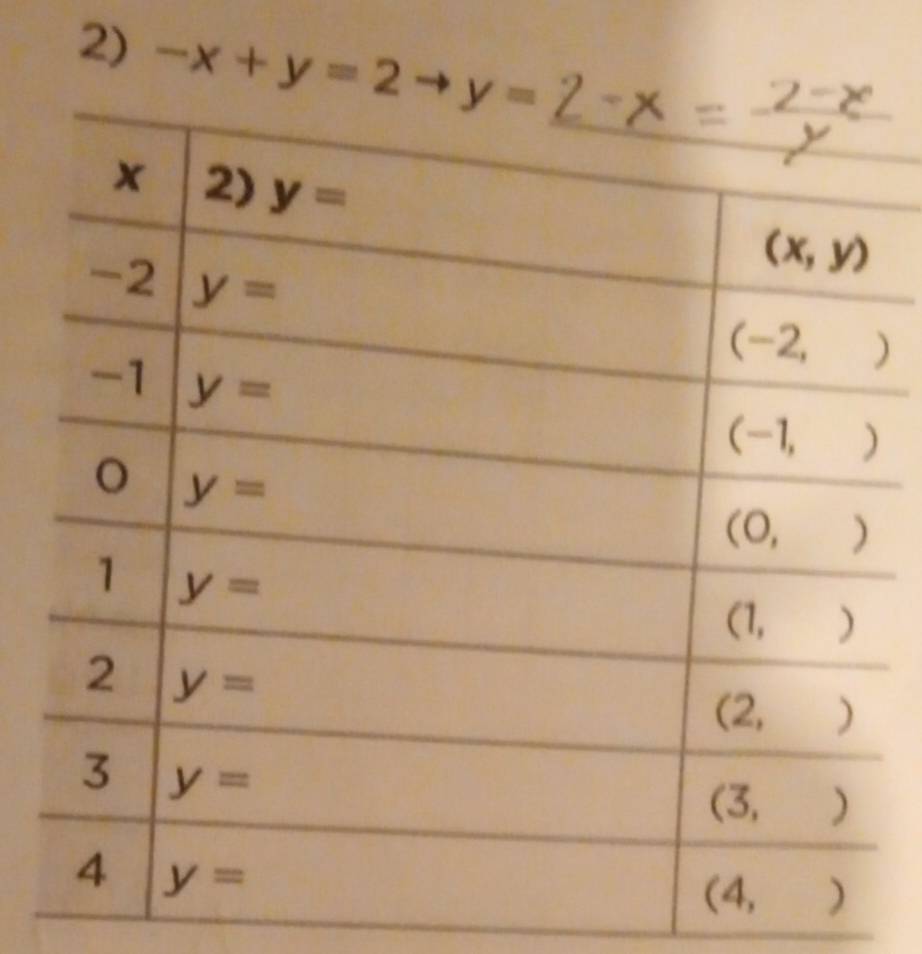 2) −x + y = 2 → y = 2 - x = 2-x/y
x 2) y = (x, y)
−2 y = (−2, )
−1 y = (−1, )
0 y = (0, )
1 y = (1, )
2 y = (2, )
3 y = (3, )
4 y = (4, )